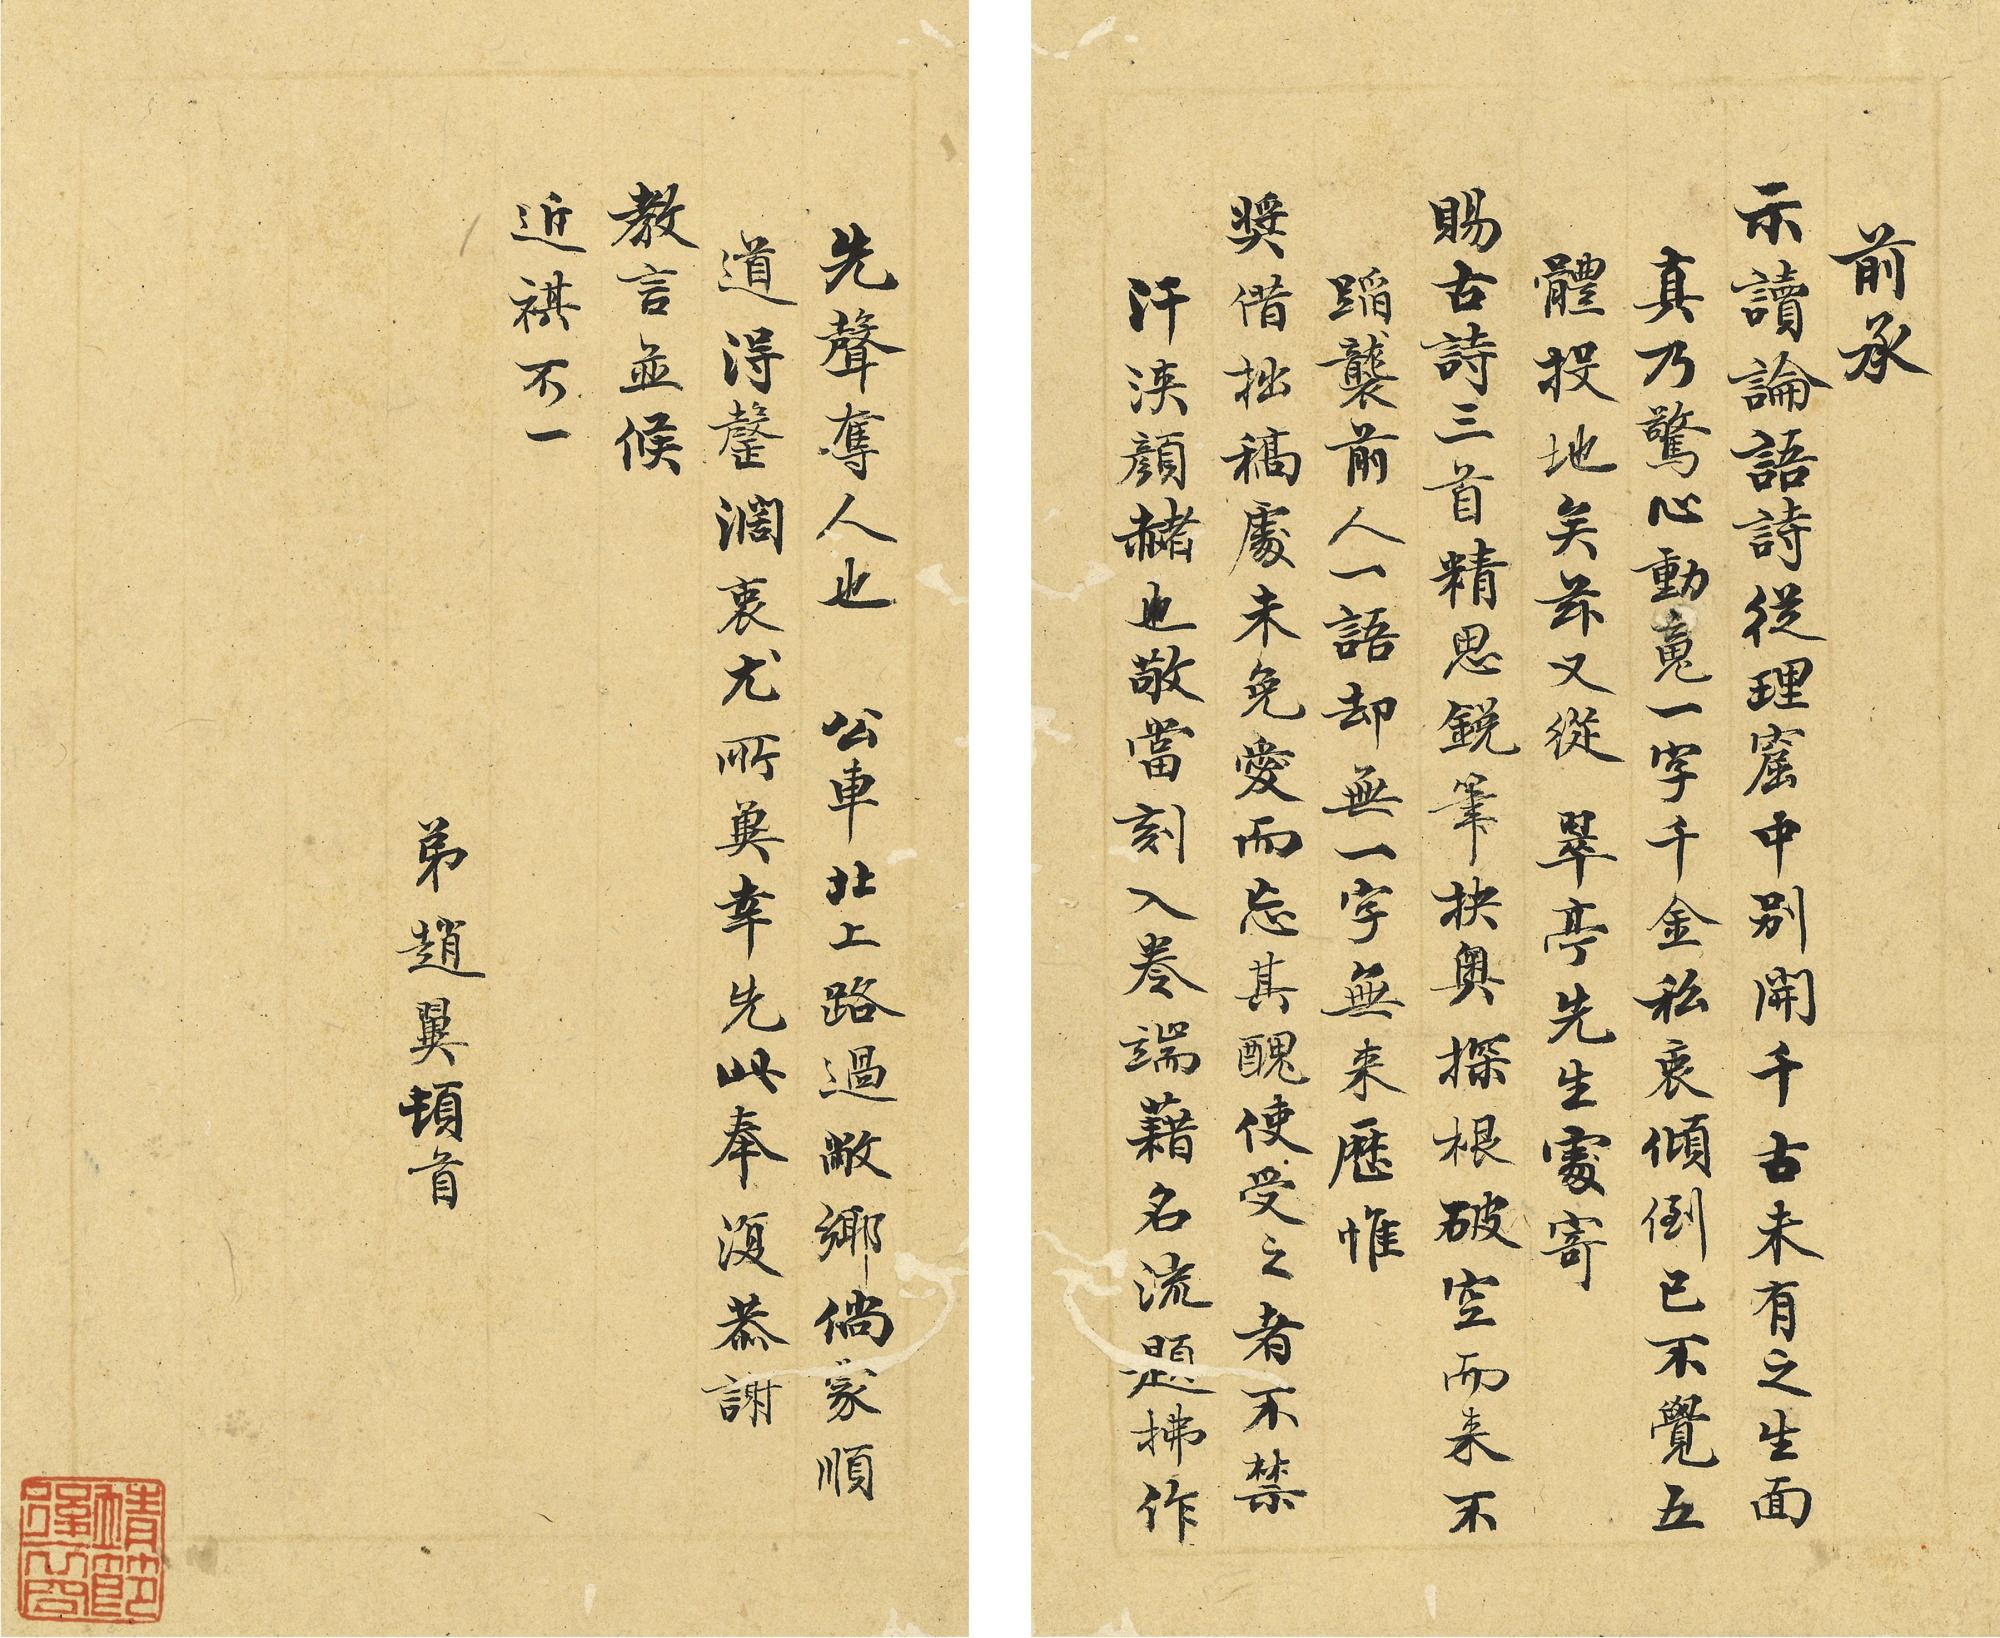 前承
示讀論語詩從理窟中別開千古未有之生面
真乃驚心動䰟一字千金私衷傾倒已不覺五
體投地矣茲又從 翠亭先生處寄
賜古詩三首精思銳筆抉奧探根破空而来不
蹈襲前人一語却無一字無来歷惟
奬借拙稿處未免愛而忘其醜使受之者不禁
汗浹顏赭也敬當刻入卷端藉名流題拂作
先聲奪人也 公車北上路過敝鄉倘家順
道得罄濶衷尤所兾幸先此奉復恭謝
教言並候
近祺不一
弟趙翼頓首